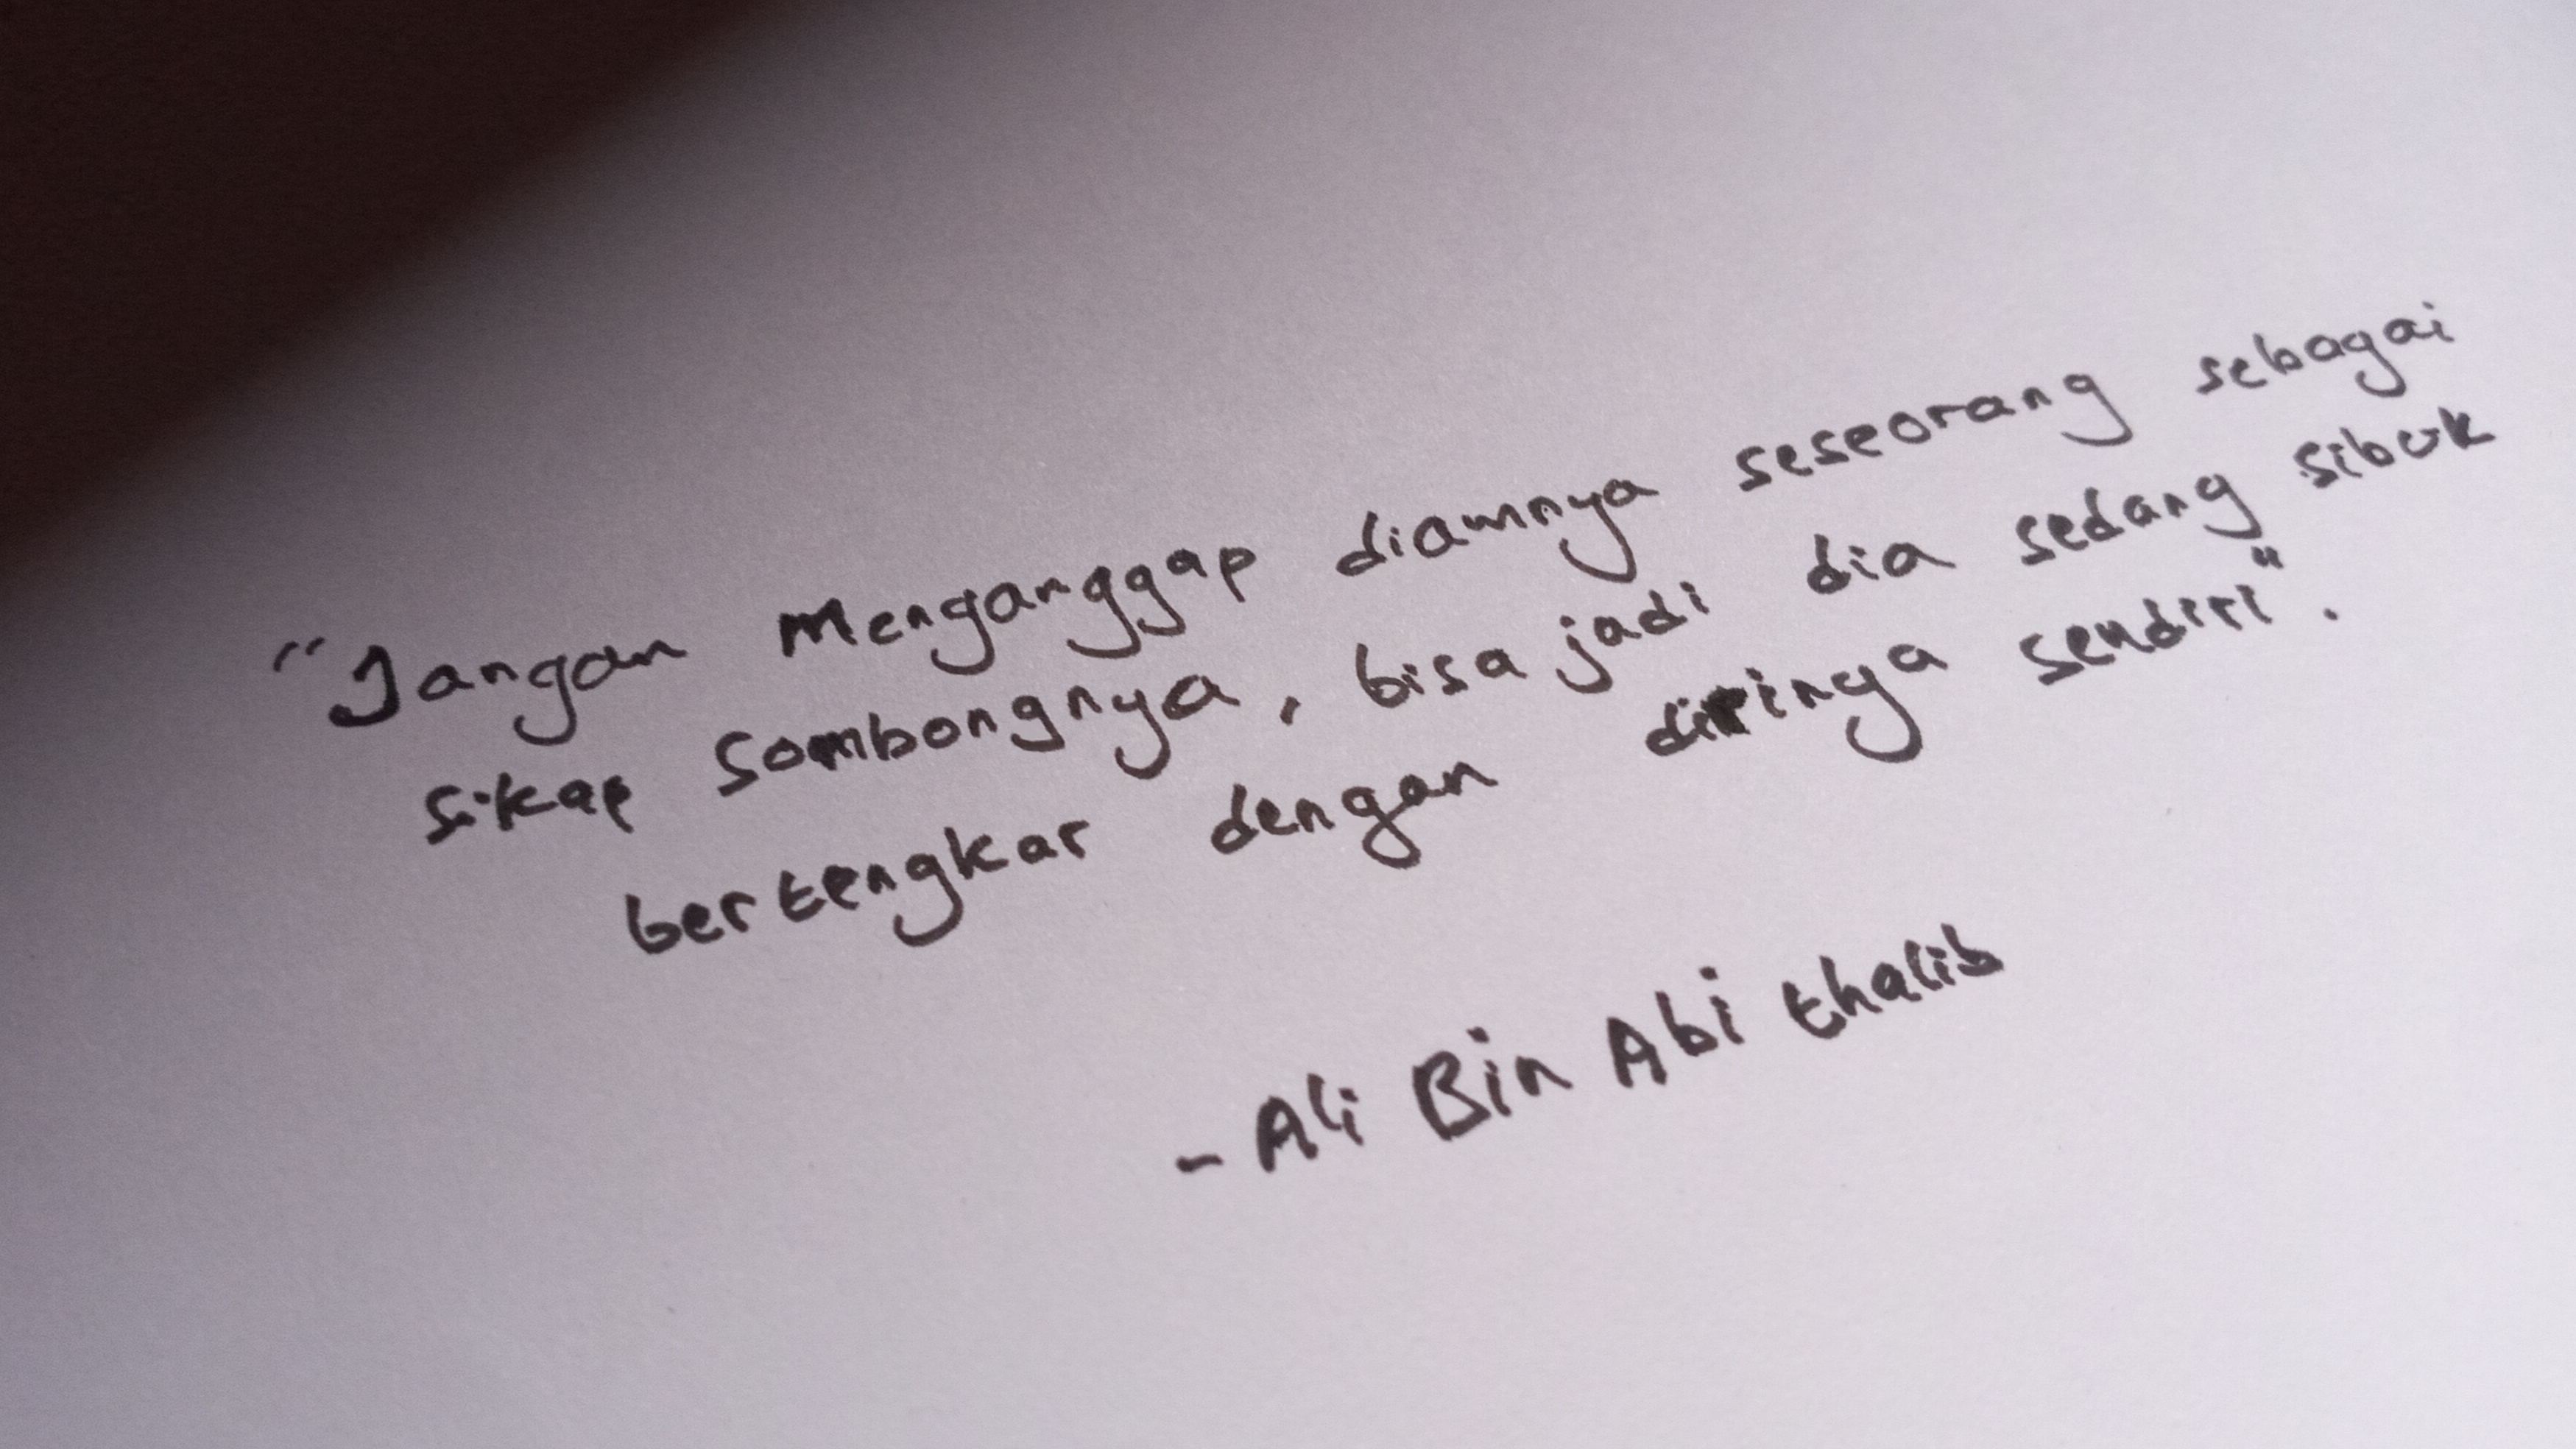 "Jangan Menganggap diamnya seseorang sebagai
sikap sombongnya, bisa jadi dia sedang sibuk
bertengkar dengan dirinya sendiri".
- Ali Bin Abi thalib